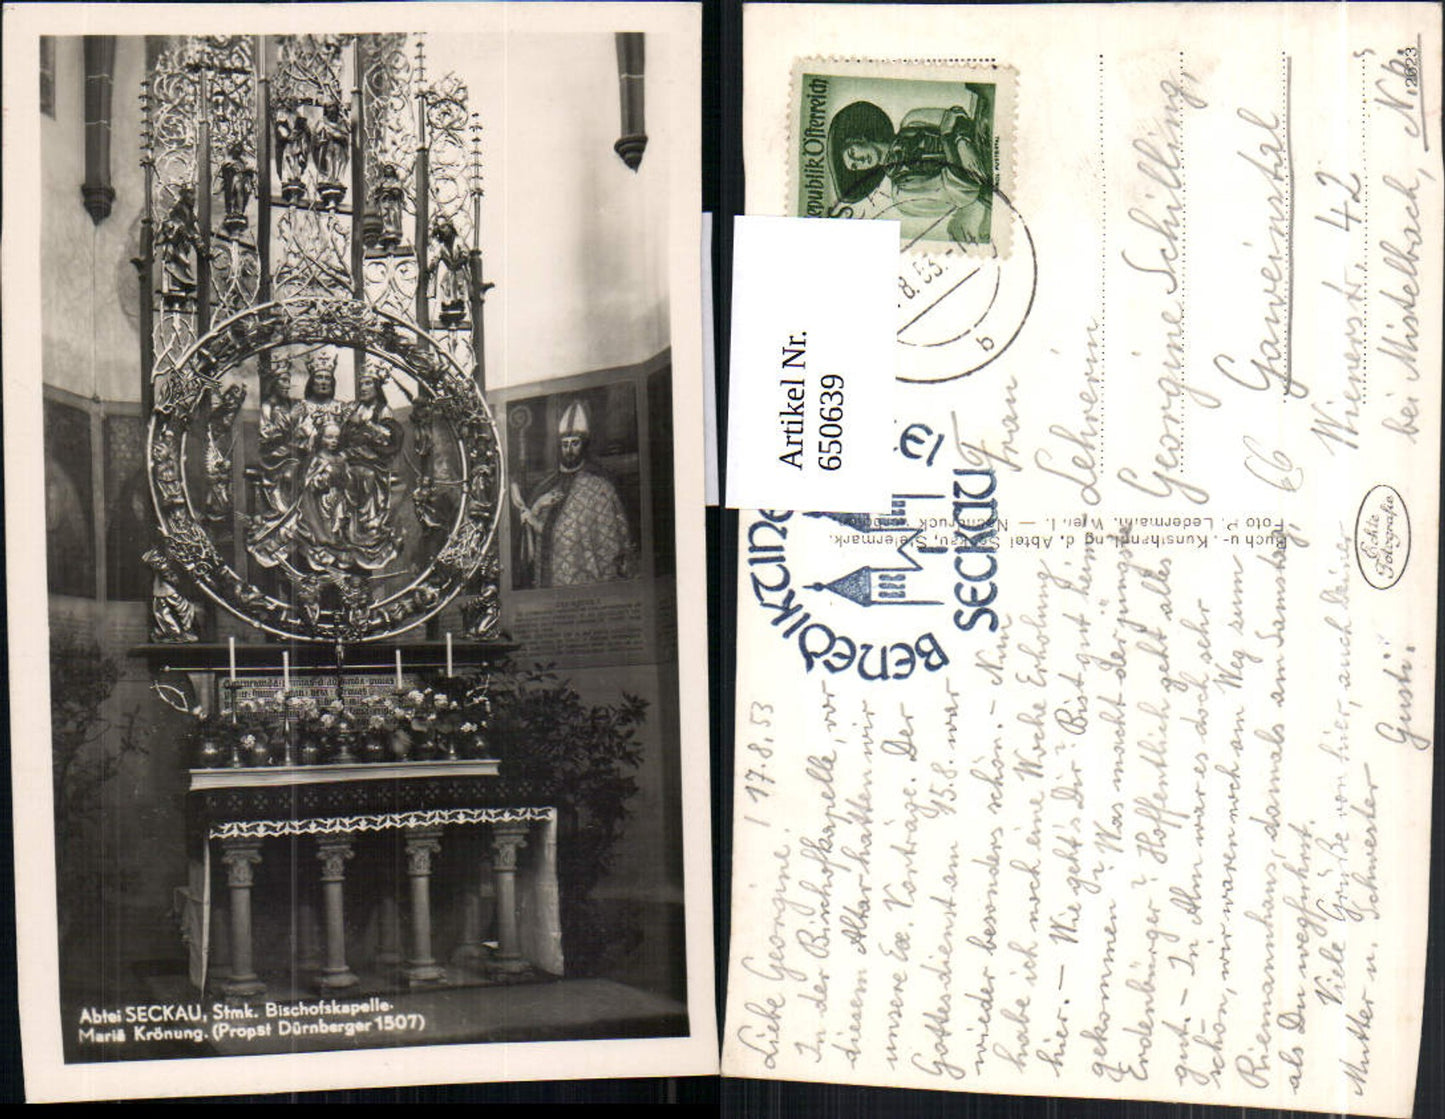 Abtei SECKAU, Stmk. Bischofskapelle.
Mariä Krönung. (Propst Dürnberger 1507)
Republik Österreich
8. 53
b
Artikel Nr.
650639
BENEDIKTINE
SECKAU
Buch- u. Kunsthandlng d. Abtei Seckau, Steiermark.
Foto P. Ledermann, Wien I. — Nachdruck verboten
Echte
Fotografie
12023
17.8.53
Liebe Georgine!
In der Bischofskapelle, vor
diesem Altar hatten wir
unsere Ex. Vorträge. Der
Gottesdienst am 15.8. war
wieder besonders schön. - Nun
habe ich noch eine Woche Erholung
hier. - Wie geht's Dir? Bist gut heim
gekommen? Was macht der junge
Hoffentlich geht alles
gut. - In Alm war es doch sehr
schön, wir waren noch am Weg zum
Riemannhaus, damals am Samstag,
als Du wegfuhrst.
Viele Grüße von hier, auch
Mutter u. Schwester
Gusti.
Frau
Lehrerin
Georgine Schilling,
Gaweinstal
Wienerstr. 42
bei Mistelbach, N.Ö.